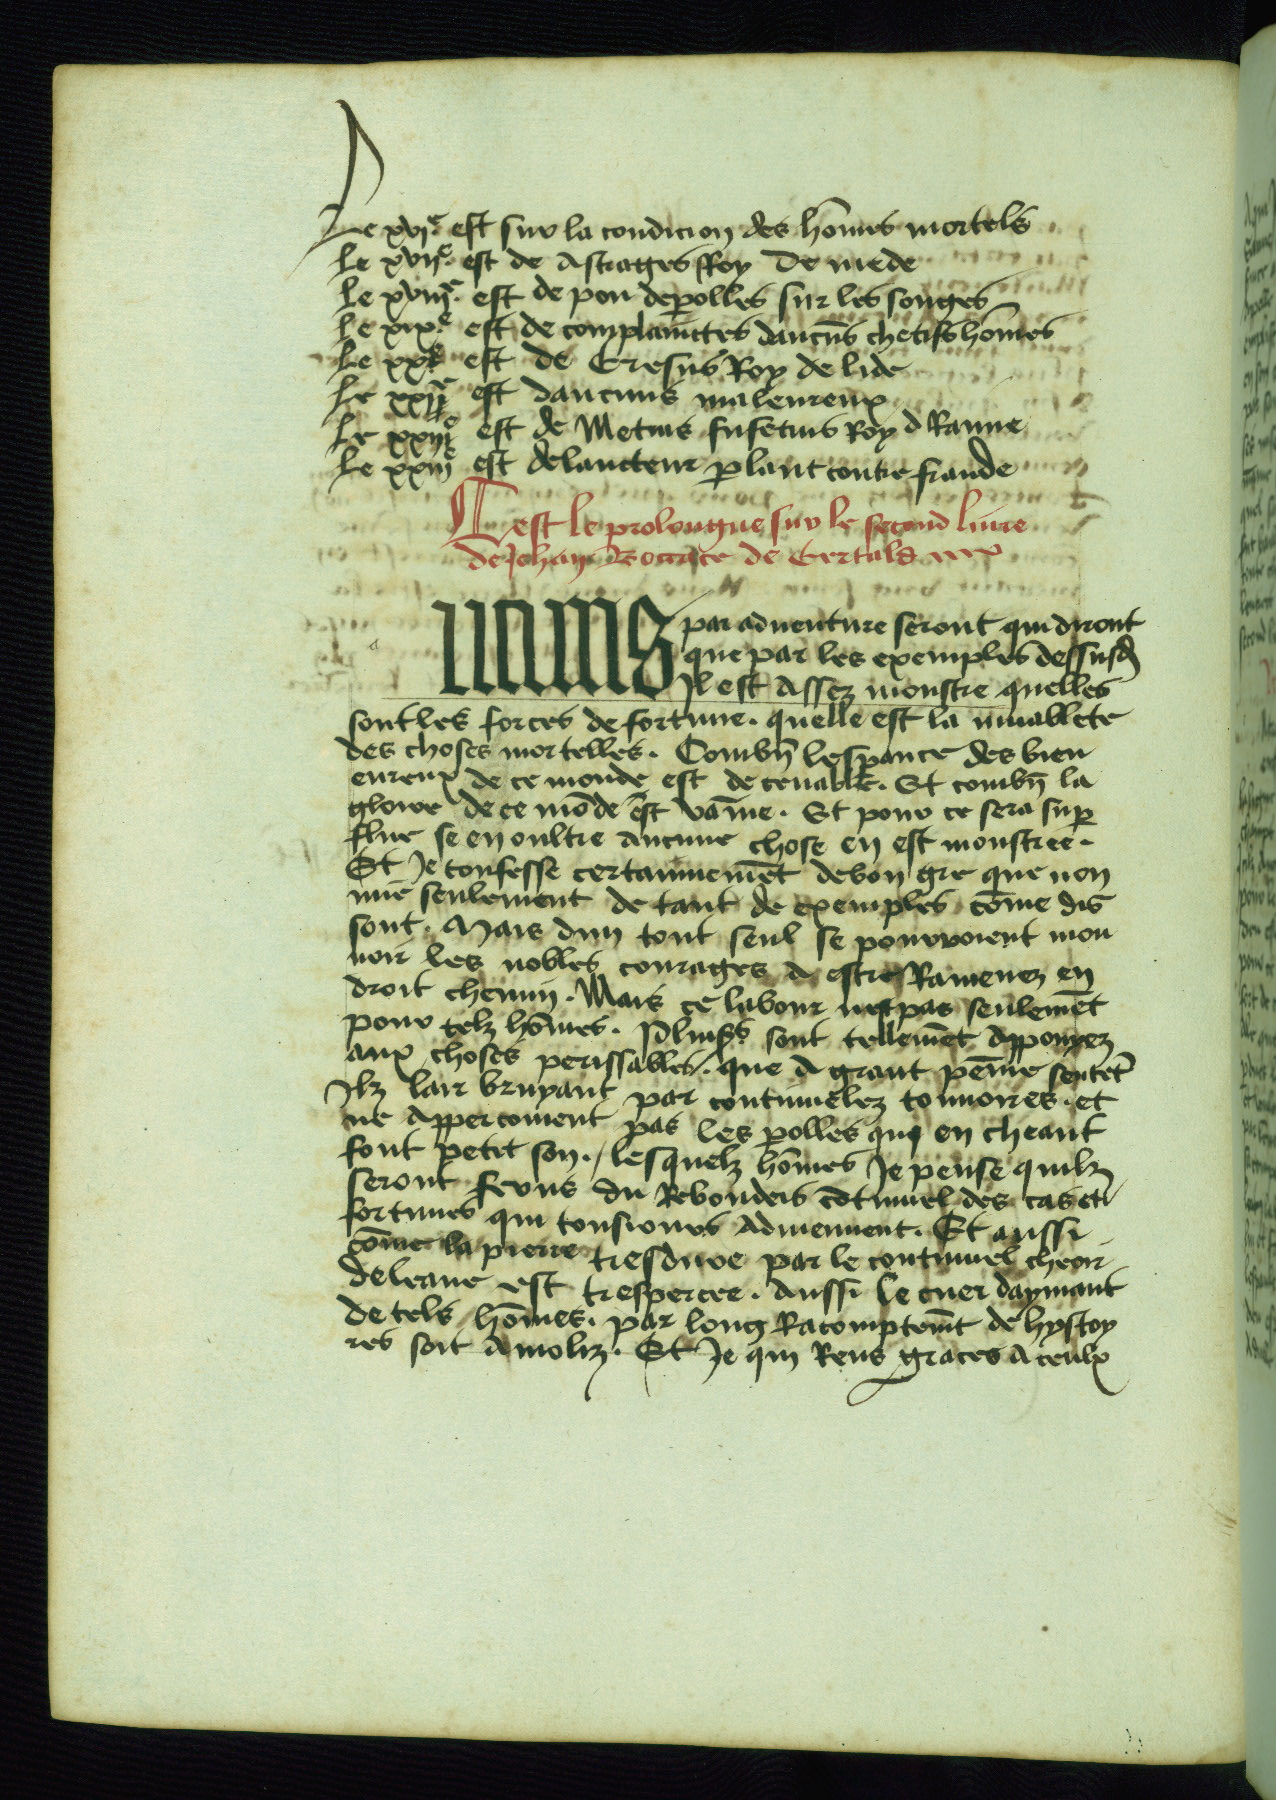 Le xvj.e est suv la condicion des hōmes mortels
Le xvij.e est de Astrages Roy de mede
Le xviij.e est de pou de ꝑolles sur les songes
Le xix.e est de complainctes daucūs chetifs hōmes
Le xx.e est de Cresus Roy de lide
Le xxij.e est daucuns maleureux
Le xxiij.e est de Metius fufetius Roy d Ranne
Le xxiiij.e est de laucteur ꝑlant contre fraude
Cest le prolongue suv le second livre
de Jehan Boccace de Certald
uuns par aduenture seront qui diront
que par les exemples dessusd
Il est Assez monstre quelles
sont les forces de fortune. quelle est la muablete
des choses mortelles. Combiē lesperance des bien
eureux de ce monde est decevable. Et combiē la
gloire de ce mōde est vaīne. Et pouv ce sera suꝑ
flue se en oultre aucune chose en est monstree.
Et Je confesse certainnemēt de bon gre que non
mie seulement de tant de exemples cōme dis
sont. Mais dun tout seul se pouvroient mou
uoir les nobles courages A estre Ramenez en
droit chemin. Mais ce labour nest pas seulemēt
pouv telz hōmes. Plus.rs sont tellemēt Appouyez
aux choses perissables. que A grant peīne sentēt
Ilz lair bruyant par continuelez tonnoires. et
ne Appercoiuent pas les ꝑolles qui en cheant
font petit son. lesquelz hōmes Je pense quilz
seront ferus du Rebondeis cōtinuel des cas et
fortunes qui tousiours Aduiennent. Et aussi
cōme la pierre tresdure par le continuel cheoir
de leaue est trespercee. Aussi le cuer daymant
de tels hōmes. par long Racomptemēt de hystoy
res soit Amoliz. Et Je qui Rens graces A ceulx